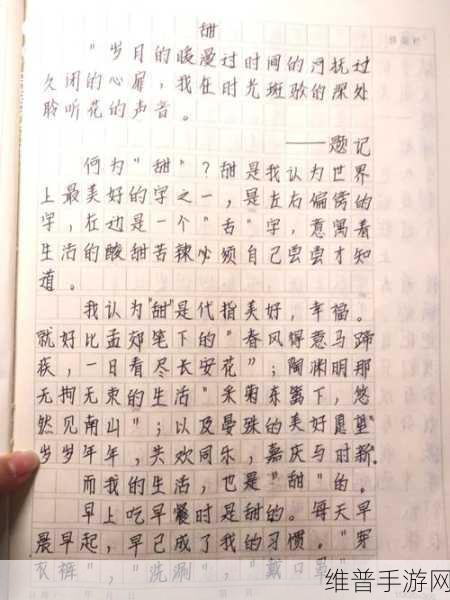 甜
"岁月的暖漫过时间的河抚过
久闭的心扉，我在时光斑驳的深处
聆听花的声音。
——题记
何为"甜"？甜是我认为世界
上最美好的字之一，是左右偏旁的
字，左边是一个"舌"字，意寓着
生活的酸甜苦辣必须自己尝尝才知
道。
我认为"甜"是代指美好，幸福。
就好比孟郊笔下的"春风得意马蹄
疾，一日看尽长安花"；陶渊明那
无拘无束的生活"采菊东篱下，悠
然见南山"；以及晏殊的美好愿望"
岁岁年年，共欢同乐，嘉庆与时新。
而我的生活，也是"甜"的。
早上吃早餐时是甜的。每天早
晨早起，早已成了我的习惯。"穿
衣裤"，"洗漱"，"戴口罩"
维普手游网
www.vipcsw.com